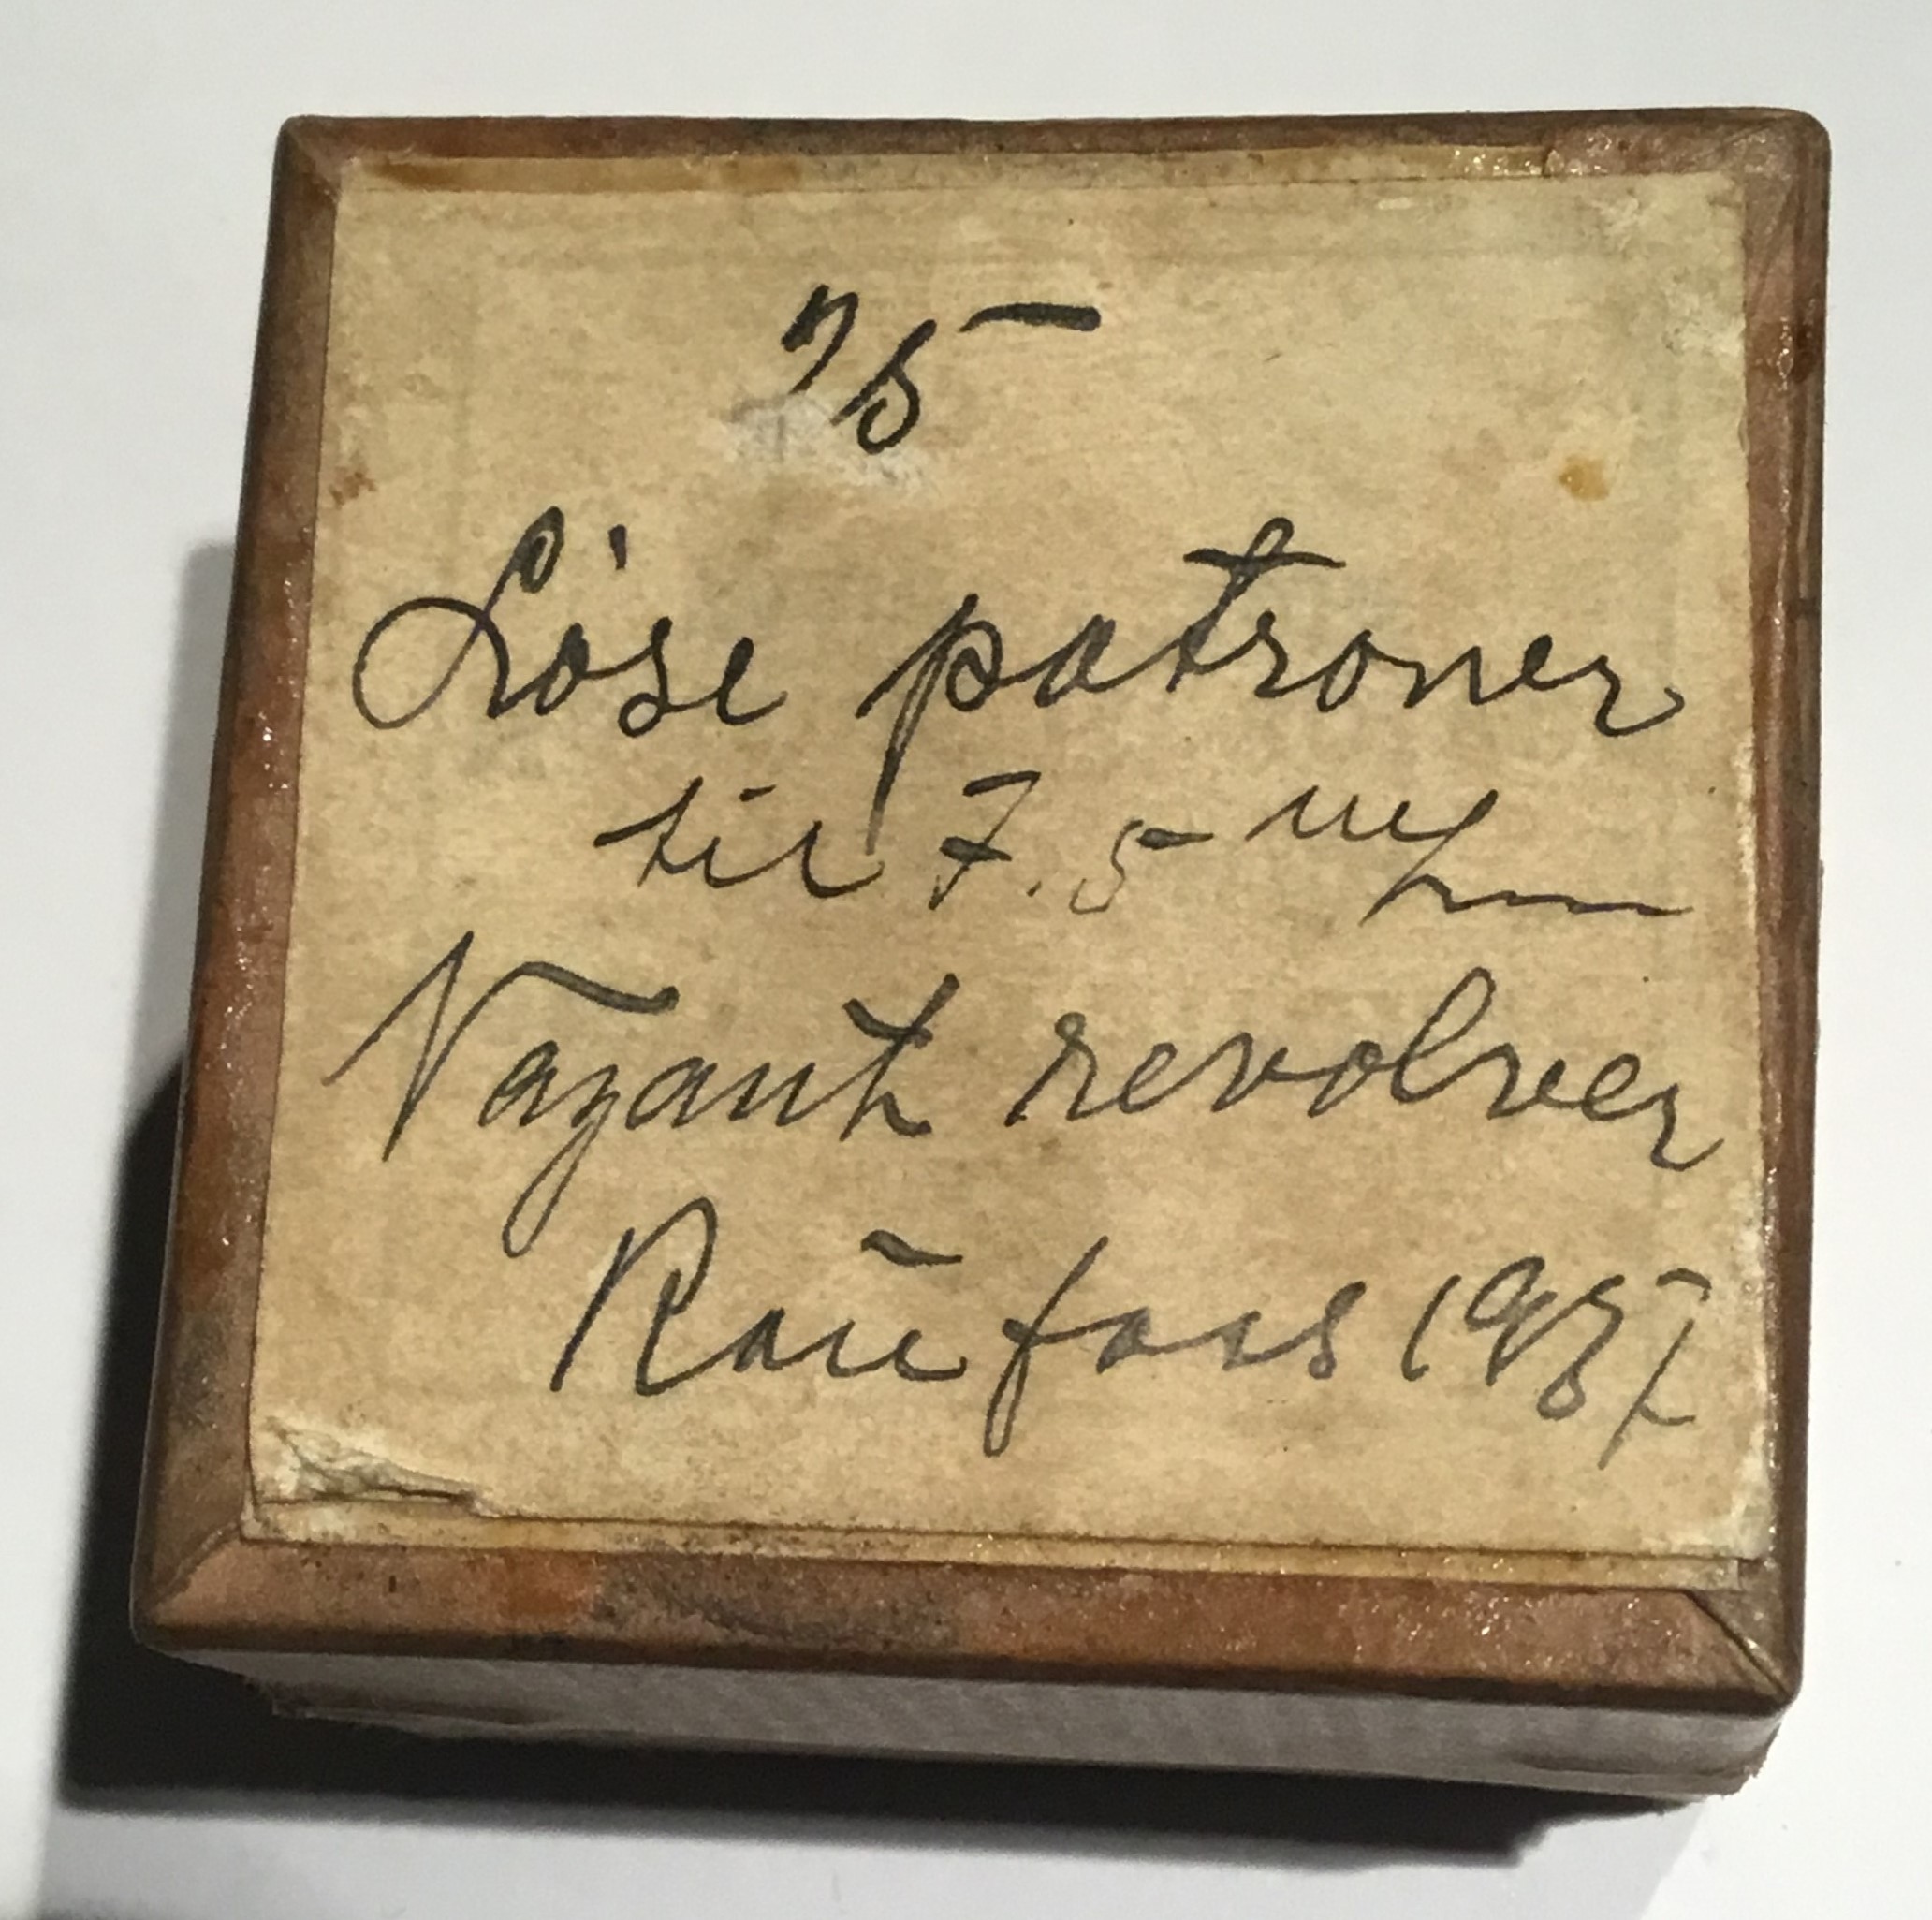 75
Löse patroner
til 7.5 m/m
Nagant revolver
Raufoss 1937